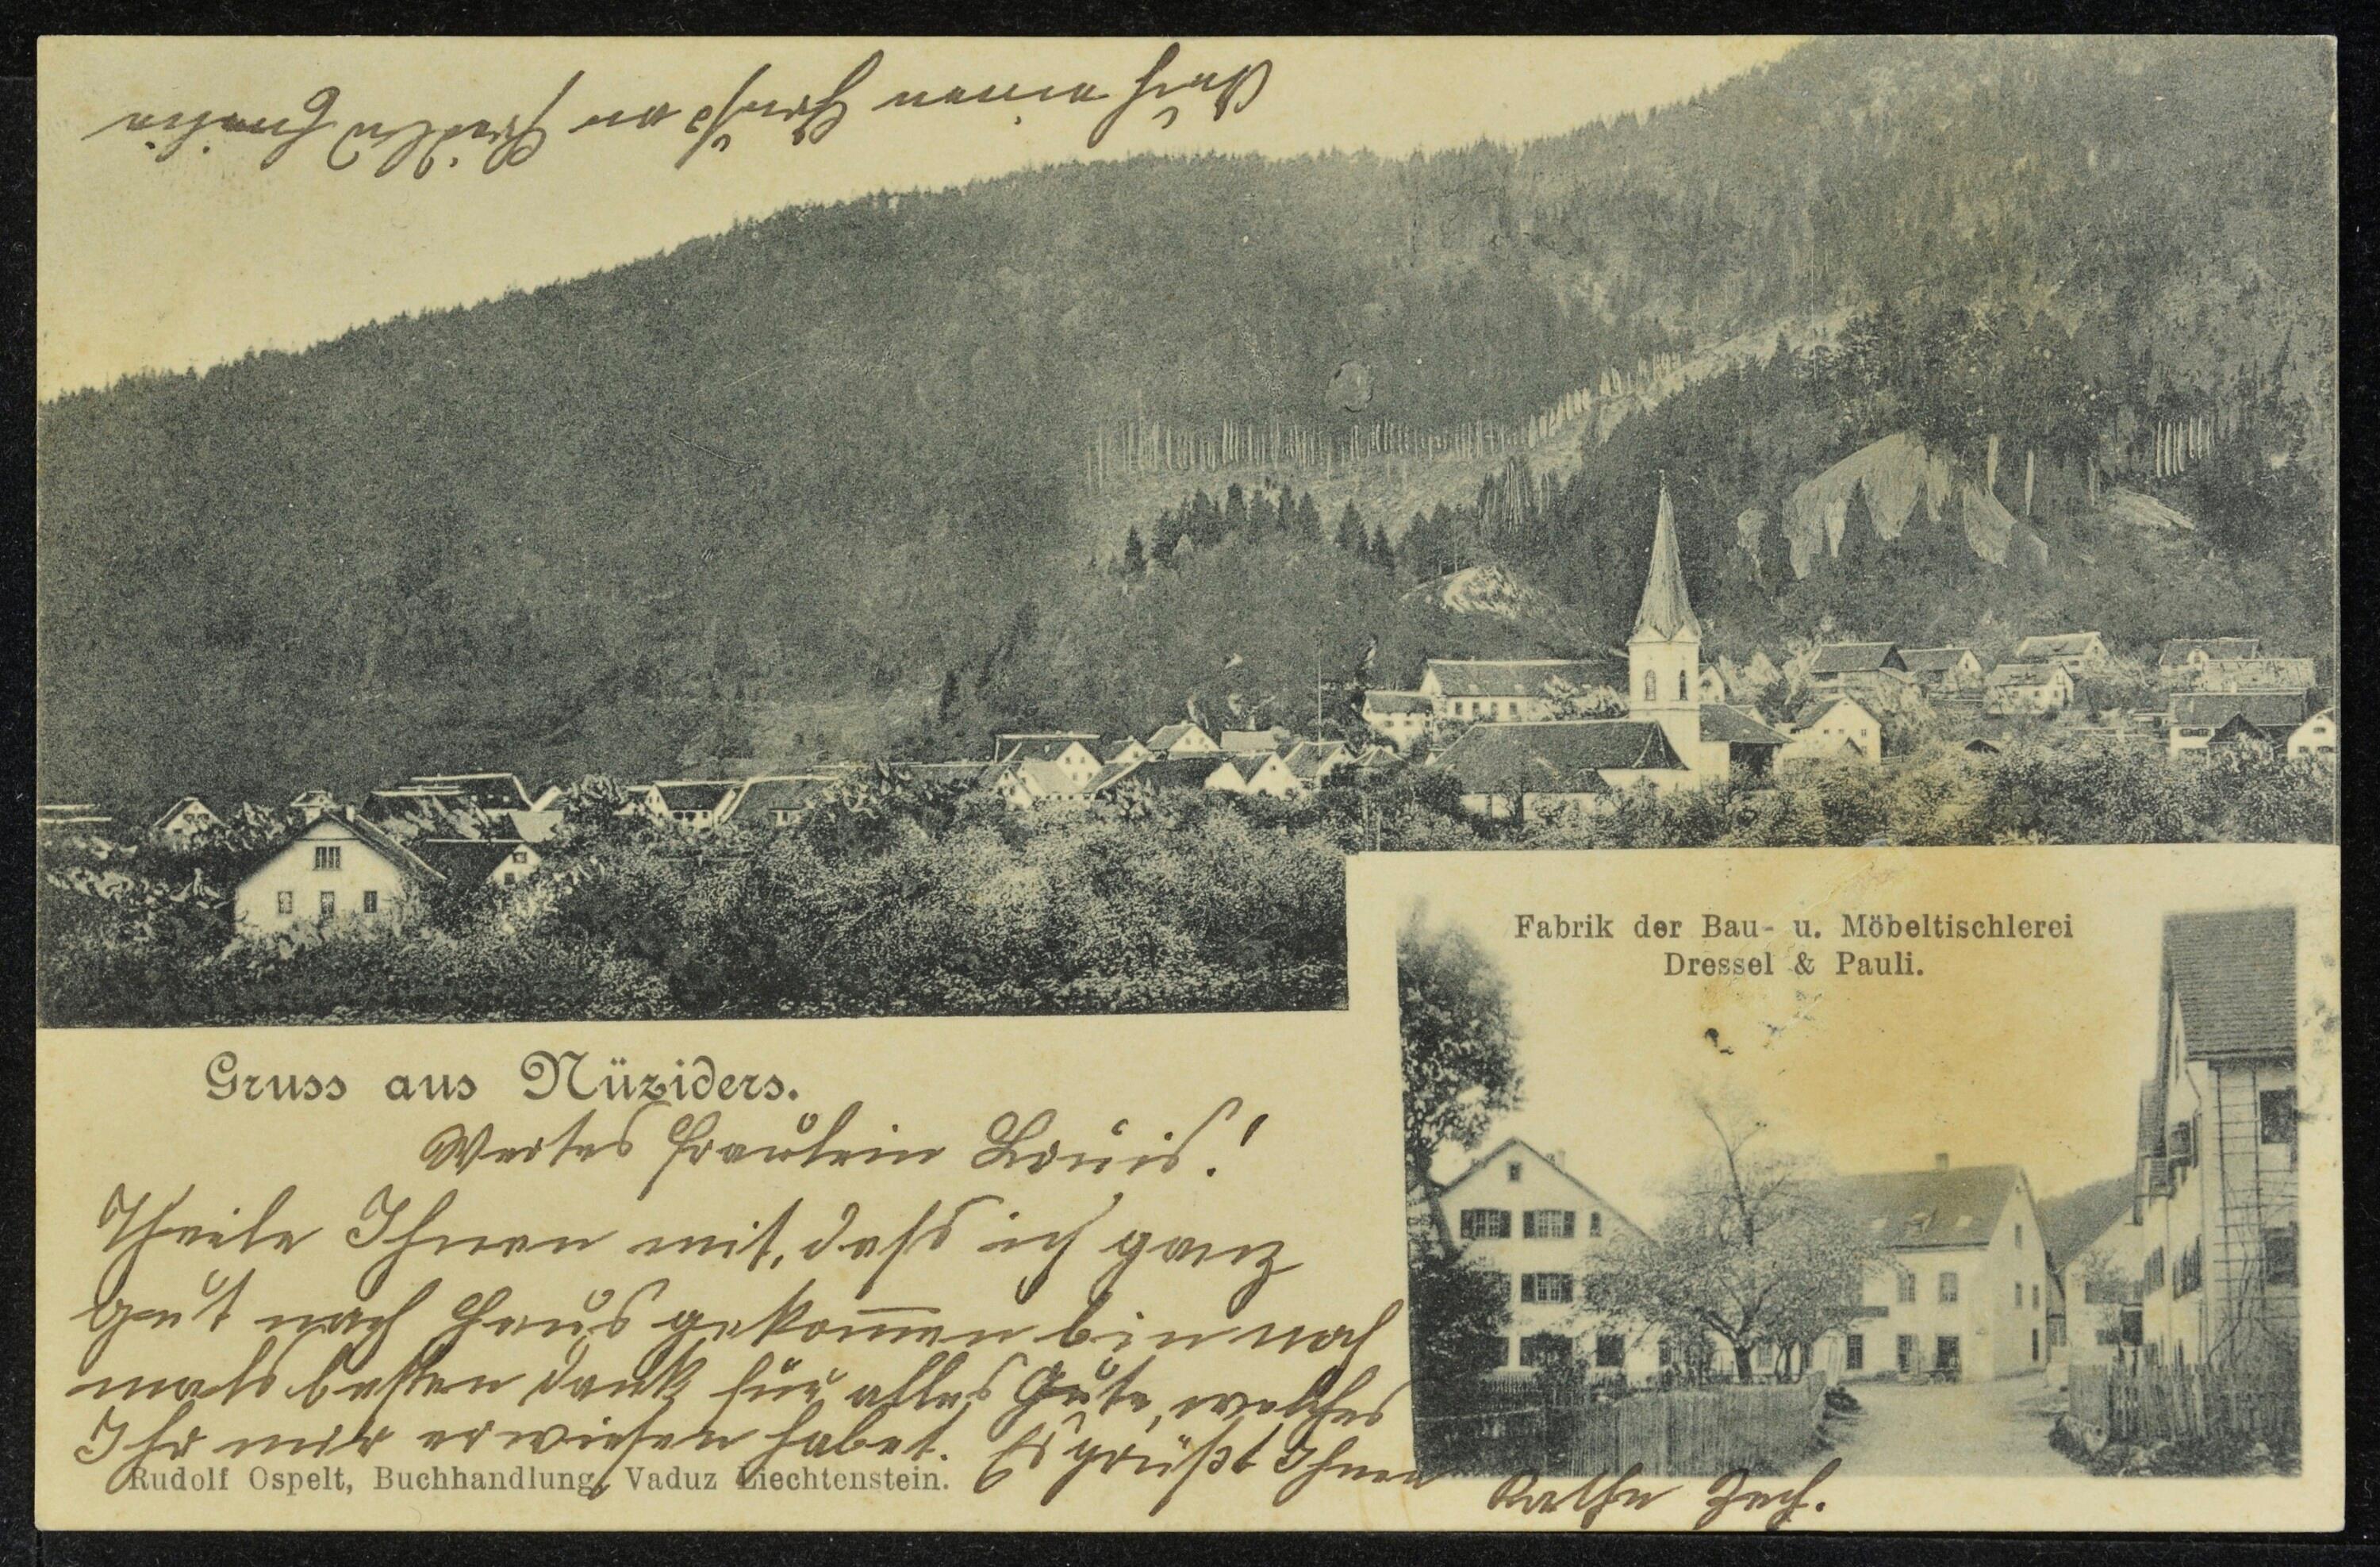 Auch einen Gruß an Fridlin
Fabrik der Bau- u. Möbeltischlerei
Dressel & Pauli.
Gruss aus Nüziders.
Wertes Fräulein Louis!
Theile Ihnen mit, daß ich ganz
gut nach Haus gekommen bin noch
mals besten dank für alles Gute, welches
Ihr mir erwiesen habet. Es grüßt Ihnen
Rudolf Ospelt, Buchhandlung, Vaduz Liechtenstein.
Zech.